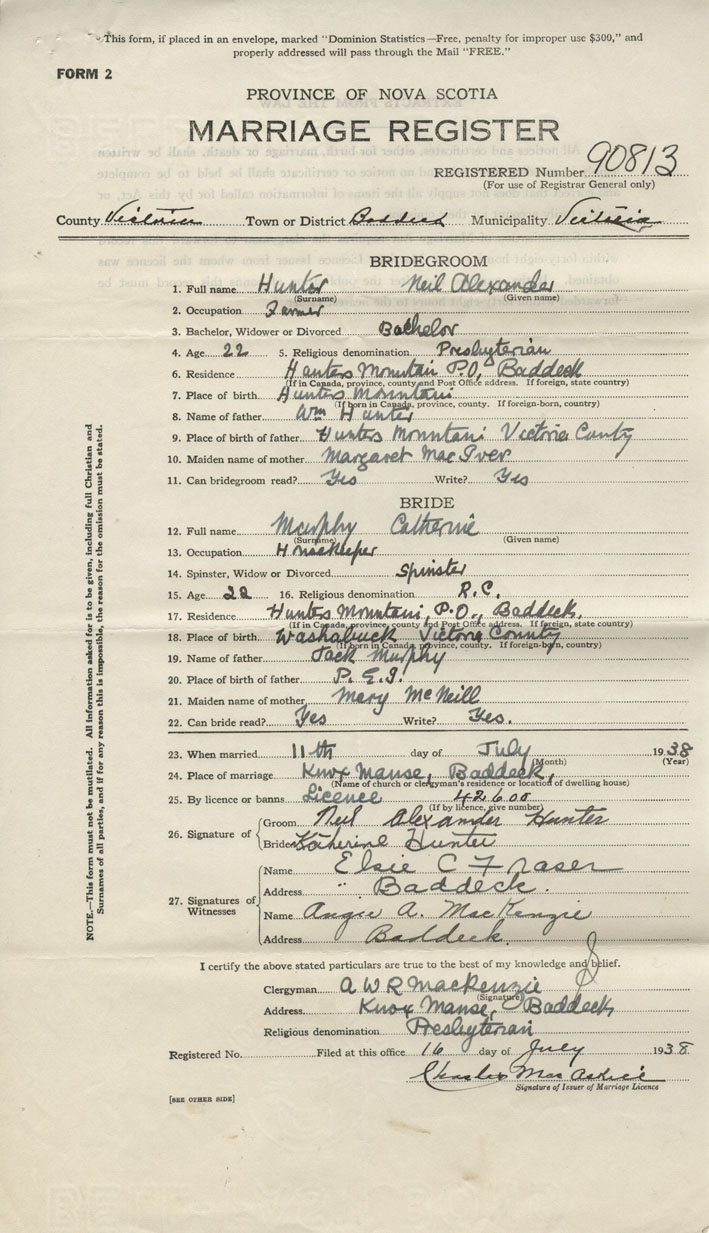 This form, if placed in an envelope, marked "Dominion Statistics—Free, penalty for improper use $300," and
properly addressed will pass through the Mail "FREE."
FORM 2
PROVINCE OF NOVA SCOTIA
MARRIAGE REGISTER
REGISTERED Number 90813
(For use of Registrar General only)
County Victoria Town or District Baddeck Municipality Victoria
BRIDEGROOM
1. Full name Hunter Neil Alexander
(Surname) (Given name)
2. Occupation Farmer
3. Bachelor, Widower or Divorced Bachelor
4. Age 22 5. Religious denomination Presbyterian
6. Residence Hunters Mountain P.O, Baddeck
(If in Canada, province, county and Post Office address. If foreign, state country)
7. Place of birth Hunters Mountain
(If born in Canada, province, county. If foreign-born, country)
8. Name of father Wm Hunter
9. Place of birth of father Hunters Mountain Victoria County
10. Maiden name of mother Margaret MacIver
11. Can bridegroom read? Yes Write? Yes
BRIDE
12. Full name Murphy Catherine
(Surname) (Given name)
13. Occupation Housekeeper
14. Spinster, Widow or Divorced Spinster
15. Age 22 16. Religious denomination R.C.
17. Residence Hunters Mountain, P.O., Baddeck,
(If in Canada, province, county and Post Office address. If foreign, state country)
18. Place of birth Washabuck Victoria County
(If born in Canada, province, county. If foreign-born, country)
19. Name of father Jack Murphy
20. Place of birth of father P.E.I.
21. Maiden name of mother Mary McNeill
22. Can bride read? Yes Write? Yes.
23. When married 11th day of July 1938
(Month) (Year)
24. Place of marriage Knox Manse, Baddeck,
(Name of church or clergyman's residence or location of dwelling house)
25. By licence or banns Licence 42600
(If by licence, give number)
26. Signature of
Groom Neil Alexander Hunter
Bride Katherine Hunter
27. Signatures of Witnesses
Name Elsie C Fraser
Address " Baddeck.
Name Angie A. MacKenzie
Address Baddeck.
I certify the above stated particulars are true to the best of my knowledge and belief.
Clergyman A W R MacKenzie
(Signature)
Address Knox Manse, Baddeck
Religious denomination Presbyterian
Registered No. Filed at this office 16 day of July 1938
Charles Mac
Signature of Issuer of Marriage Licence
[SEE OTHER SIDE]
NOTE.—This form must not be mutilated. All information asked for is to be given, including full Christian and
Surnames of all parties, and if for any reason this is impossible, the reason for the omission must be stated.